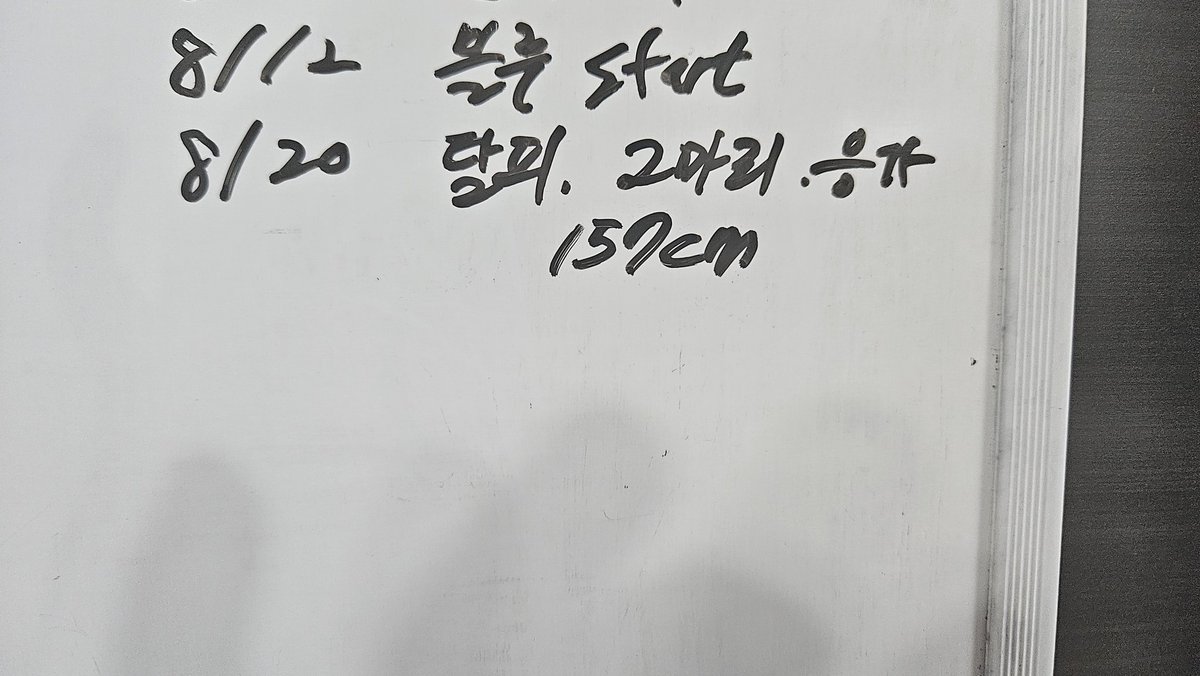 8/12 블루 start
8/20 탈피. 2마리. 응가
157cm